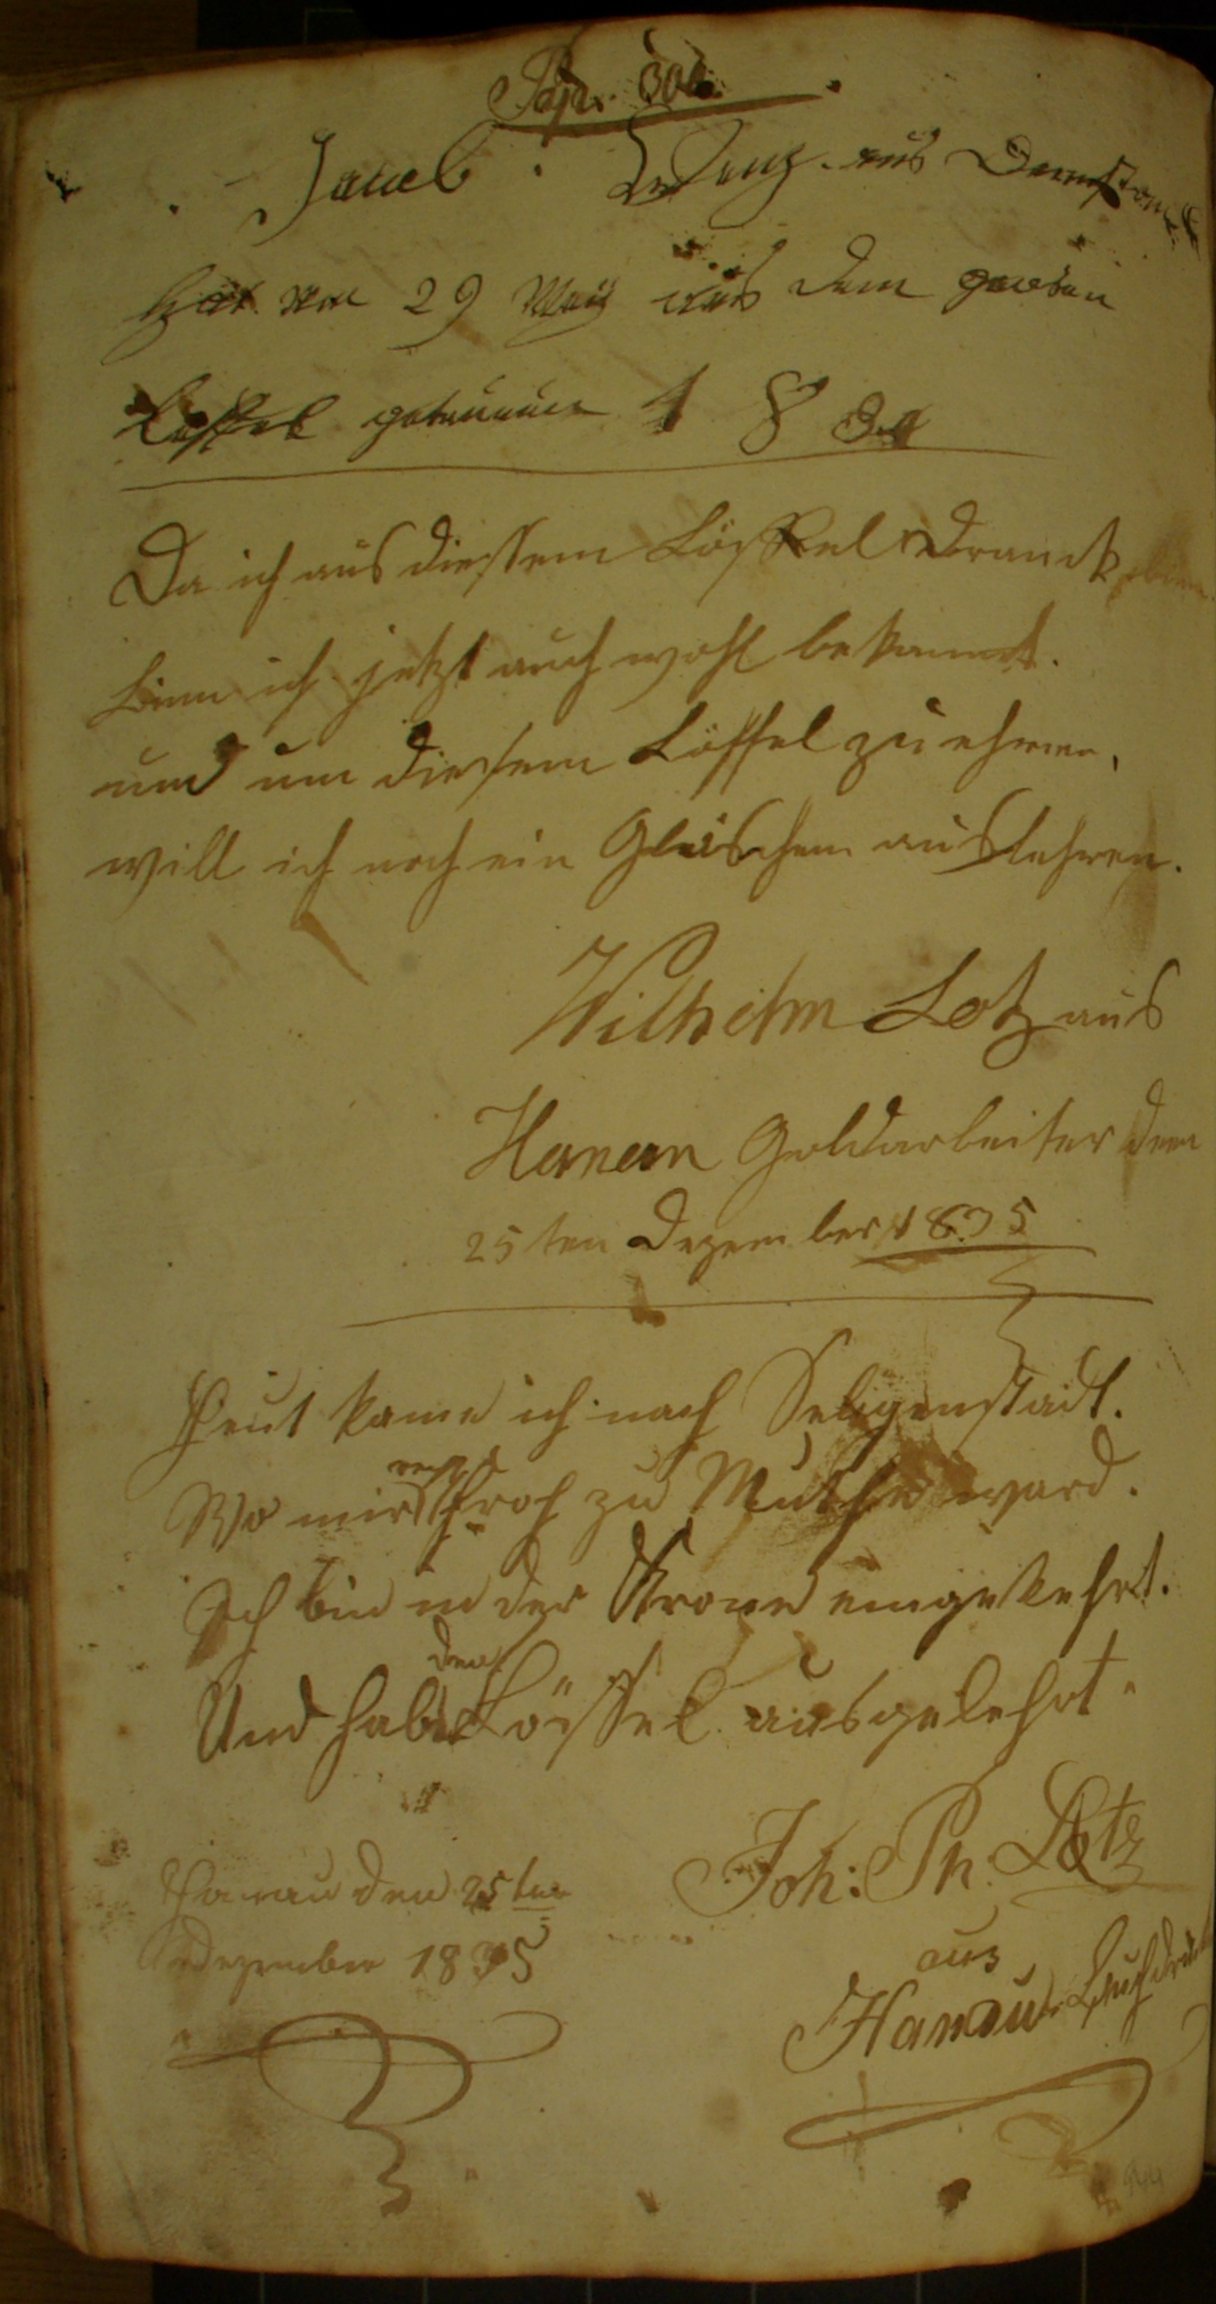 Pag. 300.
Jacob Lenz aus Darmstadt
hat am 29 Maij aus dem grosen
Leffel getruncken 1 8 34
Da ich aus diessem Löffel Dranck
binn ich jetzt auch wohl bekannt.
und um diesem Löffel zu ehren,
will ich noch ein Gläschen auslehren.
Wilhelm Lotz aus
Hanau Goldarbeiter den
25ten Dezember 1835
Heut kam ich nach Seligenstadt.
Wo mir recht froh zu Muthe ward.
Ich bin in der Krone eingekehrt.
Und habe den Löffel ausgelehrt.
Hanau den 25ten
Dezember 1835
Joh: Ph. Lotz
aus
Hanau